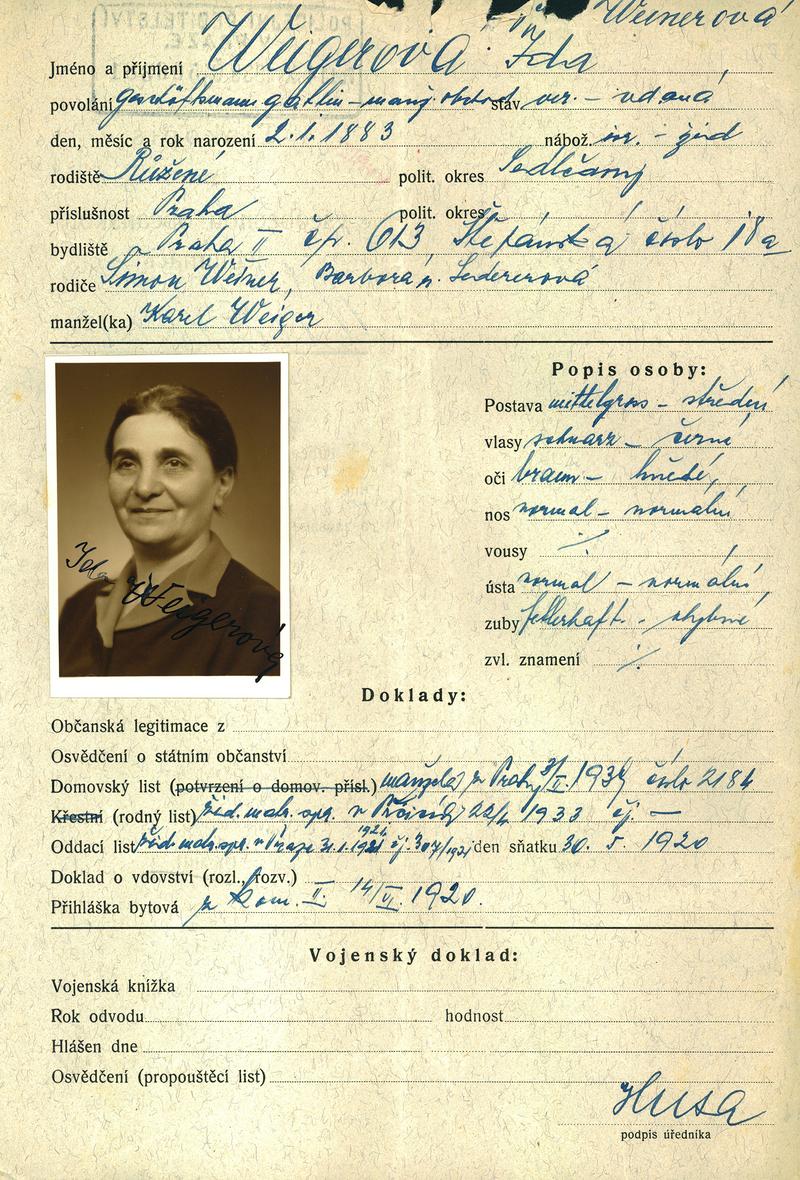 Weinerová
Jméno a příjmení Weigerová Ida
povolání geschäftsmanns gattin – manž. obchod. stav ver. – vdaná
den, měsíc a rok narození 2.1.1883 nábož. isr. – žid
rodiště Růžené polit. okres Sedlčany
příslušnost Praha polit. okres
bydliště Praha II čp. 613 Štěpánská číslo 18a
rodiče Šimon Weiner, Barbora r. Ledererová
manžel(ka) Karel Weiger
Popis osoby:
Postava mittelgross – střední
vlasy schwarz – černé
oči braun – hnědé
nos normal – normální
vousy ·/.
ústa normal – normální
zuby fehlerhaft – chybné
zvl. znamení ·/.
Ida Weigerová
Doklady:
Občanská legitimace z
Osvědčení o státním občanství
Domovský list (potvrzení o domov. přísl.) manžela z Prahy 193 číslo 2184
Křestní (rodný list) žid. matr. spr. v 1933 čj. —
Oddací list žid. matr. spr. v Praze 31.1.1921 1921 čj. 307/1921 den sňatku 30. 5. 1920
Doklad o vdovství (rozl., rozv.)
Přihláška bytová z kom. II. 14/VI. 1920.
Vojenský doklad:
Vojenská knížka
Rok odvodu hodnost
Hlášen dne
Osvědčení (propouštěcí list)
Husa
podpis úředníka